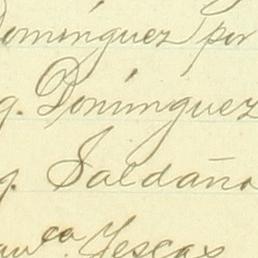 Domínguez por
g. Domínguez
g. Saldaña
Yescas